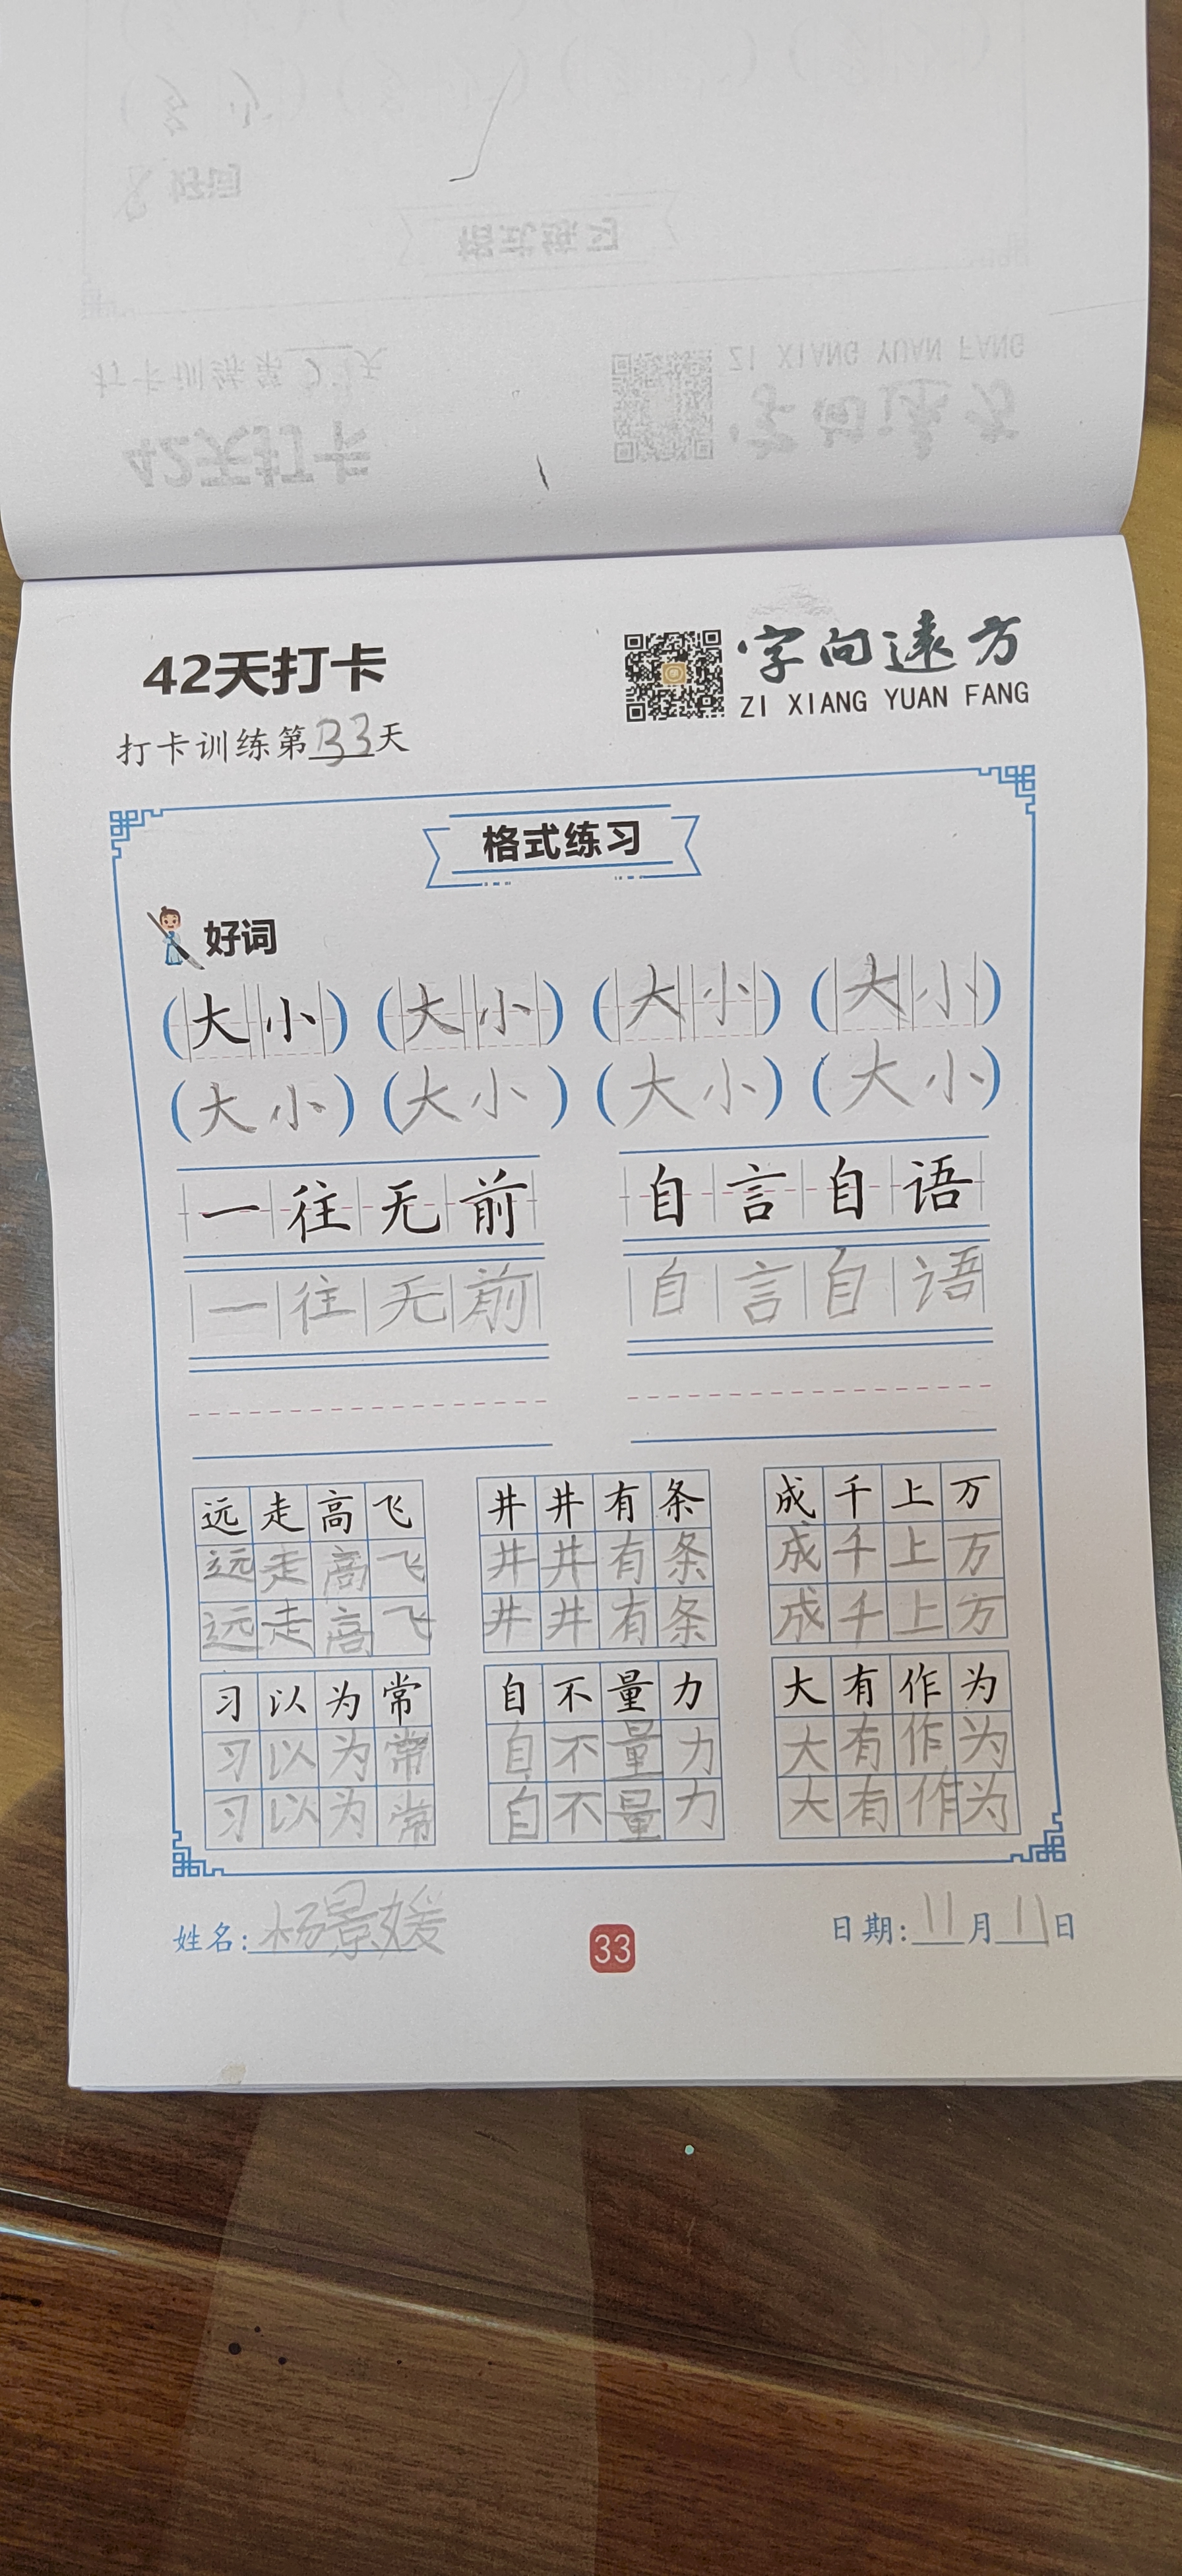 42天打卡
字向遠方
ZI XIANG YUAN FANG
打卡训练第33天
格式练习
好词
(大小) (大小) (大小) (大小)
(大小) (大小) (大小) (大小)
一往无前 自言自语
一往无前 自言自语
远走高飞 井井有条 成千上万
远走高飞 井井有条 成千上万
远走高飞 井井有条 成千上方
习以为常 自不量力 大有作为
习以为常 自不量力 大有作为
习以为常 自不量力 大有作为
姓名:杨景媛 33 日期:11月11日